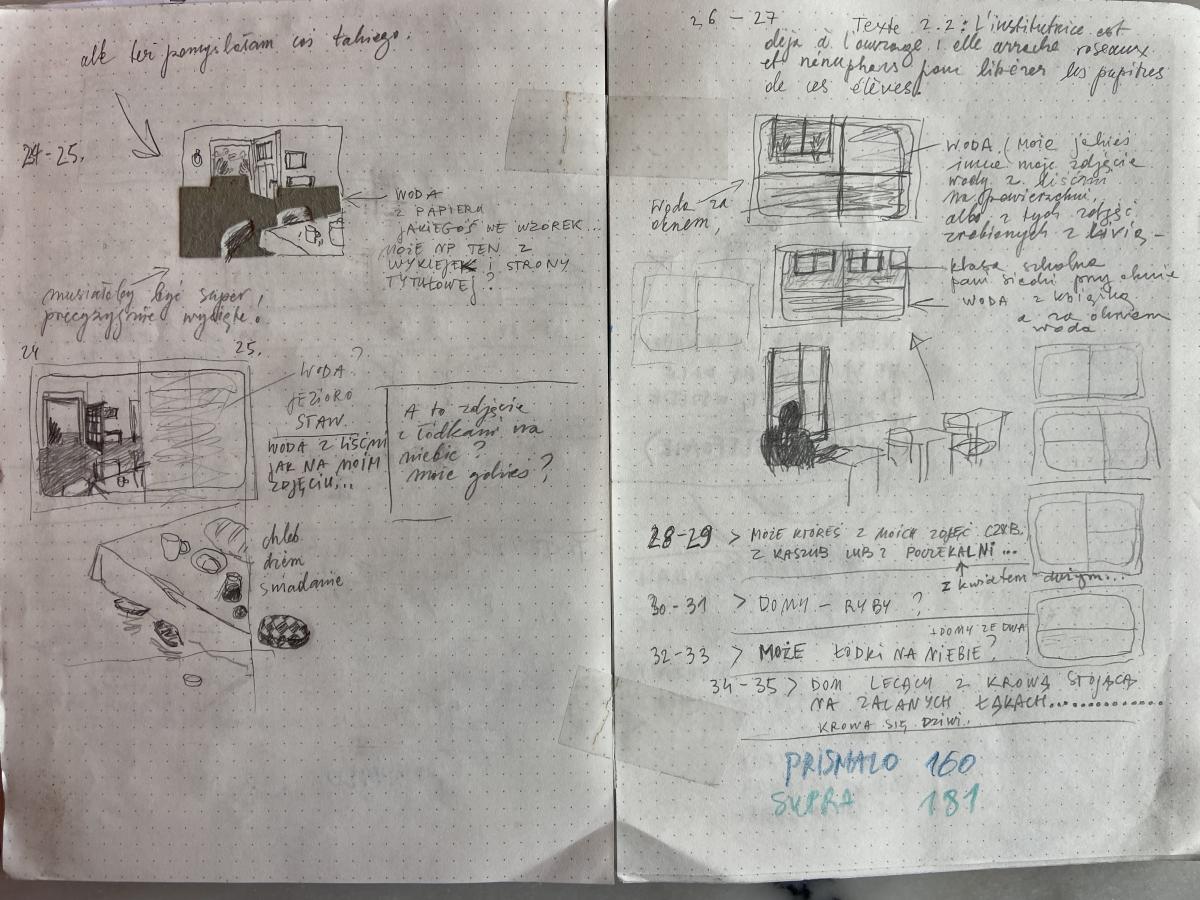 ale też pomyślałam coś takiego.
24-25.
WODA
Z PAPIERU
JAKIEGOŚ WE WZOREK...
MOŻE NP TEN Z
WYKLEJEK I STRONY
TYTUŁOWEJ?
musiałoby być super
precyzyjnie wycięte!
24
25.
WODA?
JEZIORO
STAW.
WODA Z LIŚĆMI
JAK NA MOIM
ZDJĘCIU...
A to zdjęcie
z łódkami na
niebie?
może gdzieś?
chleb
dżem
śniadanie
26-27
Texte 2.2: L'institutrice est
déjà à l'ouvrage; elle arrache roseaux
et nénuphars pour libérer les pupitres
de ces élèves.
WODA. (Może jakieś
inne moje zdjęcie
wody z liśćmi
na powierzchni,
albo z tych zdjęć
zrobionych z
Woda za
oknem,
klasa szkolna
pani siedzi przy oknie
WODA z książką
a za oknem
woda
28-29 > MOŻE KTÓREŚ Z MOICH ZDJĘĆ CZ/B.
Z KASZUB LUB Z POCZEKALNI...
z kwiatem dużym...
30-31 > DOMY - RYBY?
+DOMY ZE DWA
32-33 > MOŻE ŁÓDKI NA NIEBIE?
34-35 > DOM LECĄCY Z KROWĄ STOJĄCĄ
NA ZALANYCH ŁĄKACH..............
KROWA SIĘ DZIWI.
PRISMALO 160
SUPRA 181